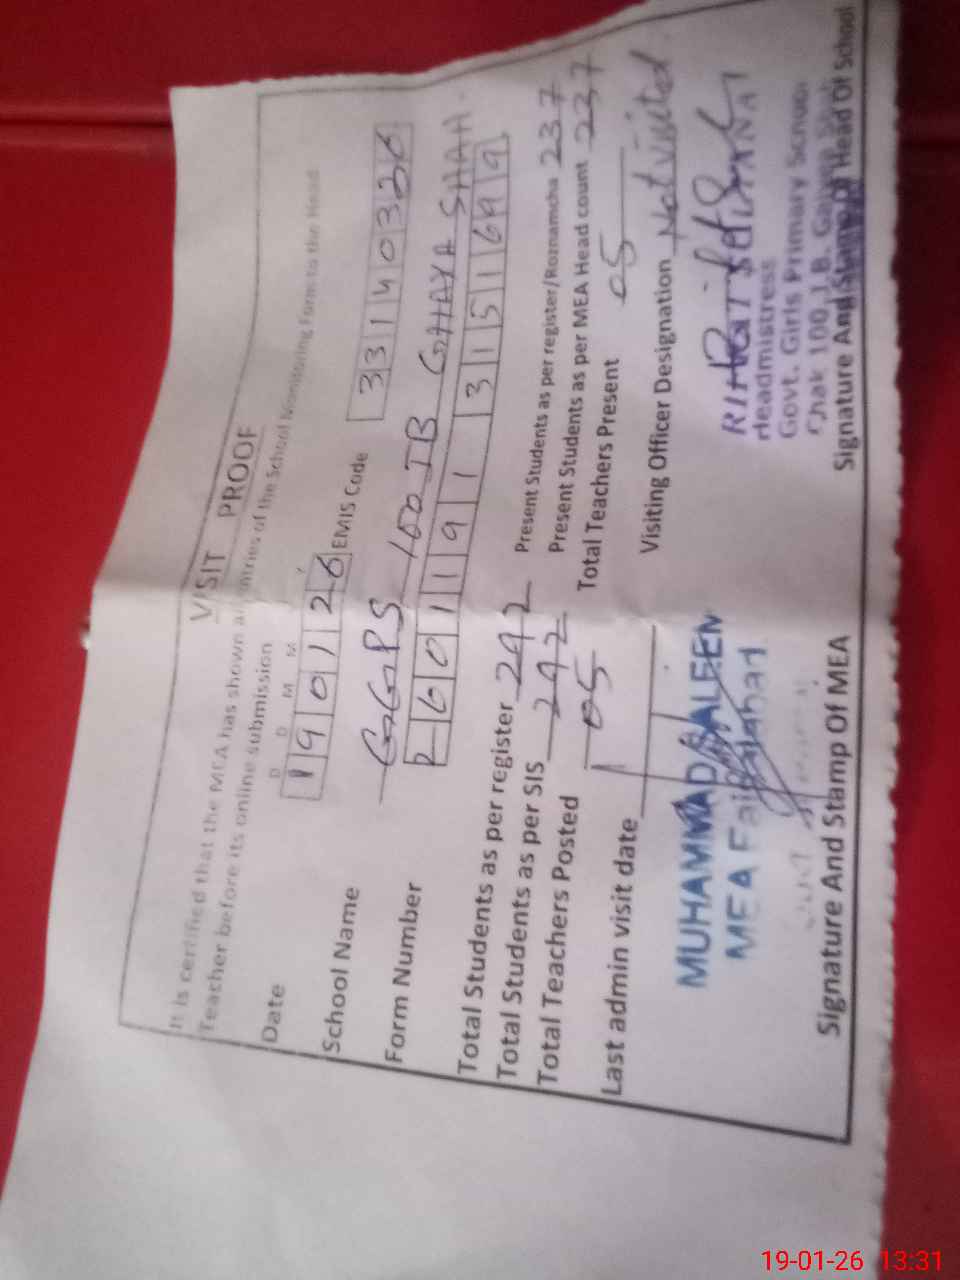 VISIT PROOF
It is certified that the MEA has shown all entries of the School Monitoring Form to the Head
Teacher before its online submission
D D M M
Date 190126 EMIS Code 33140326
School Name GGPS 100 JB
Form Number 3151699
Total Students as per register 292 Present Students as per register/Roznamcha 237
Total Students as per SIS 292 Present Students as per MEA Head count 237
Total Teachers Posted 05 Total Teachers Present 05
Last admin visit date Visiting Officer Designation Not visited
MUHAMMAD
MEA Faisalabad
Headmistress
Govt. Girls Primary School
Chak 100 J.B.
Signature And Stamp Of MEA Signature And Stamp Of Head Of School
19-01-26 13:31